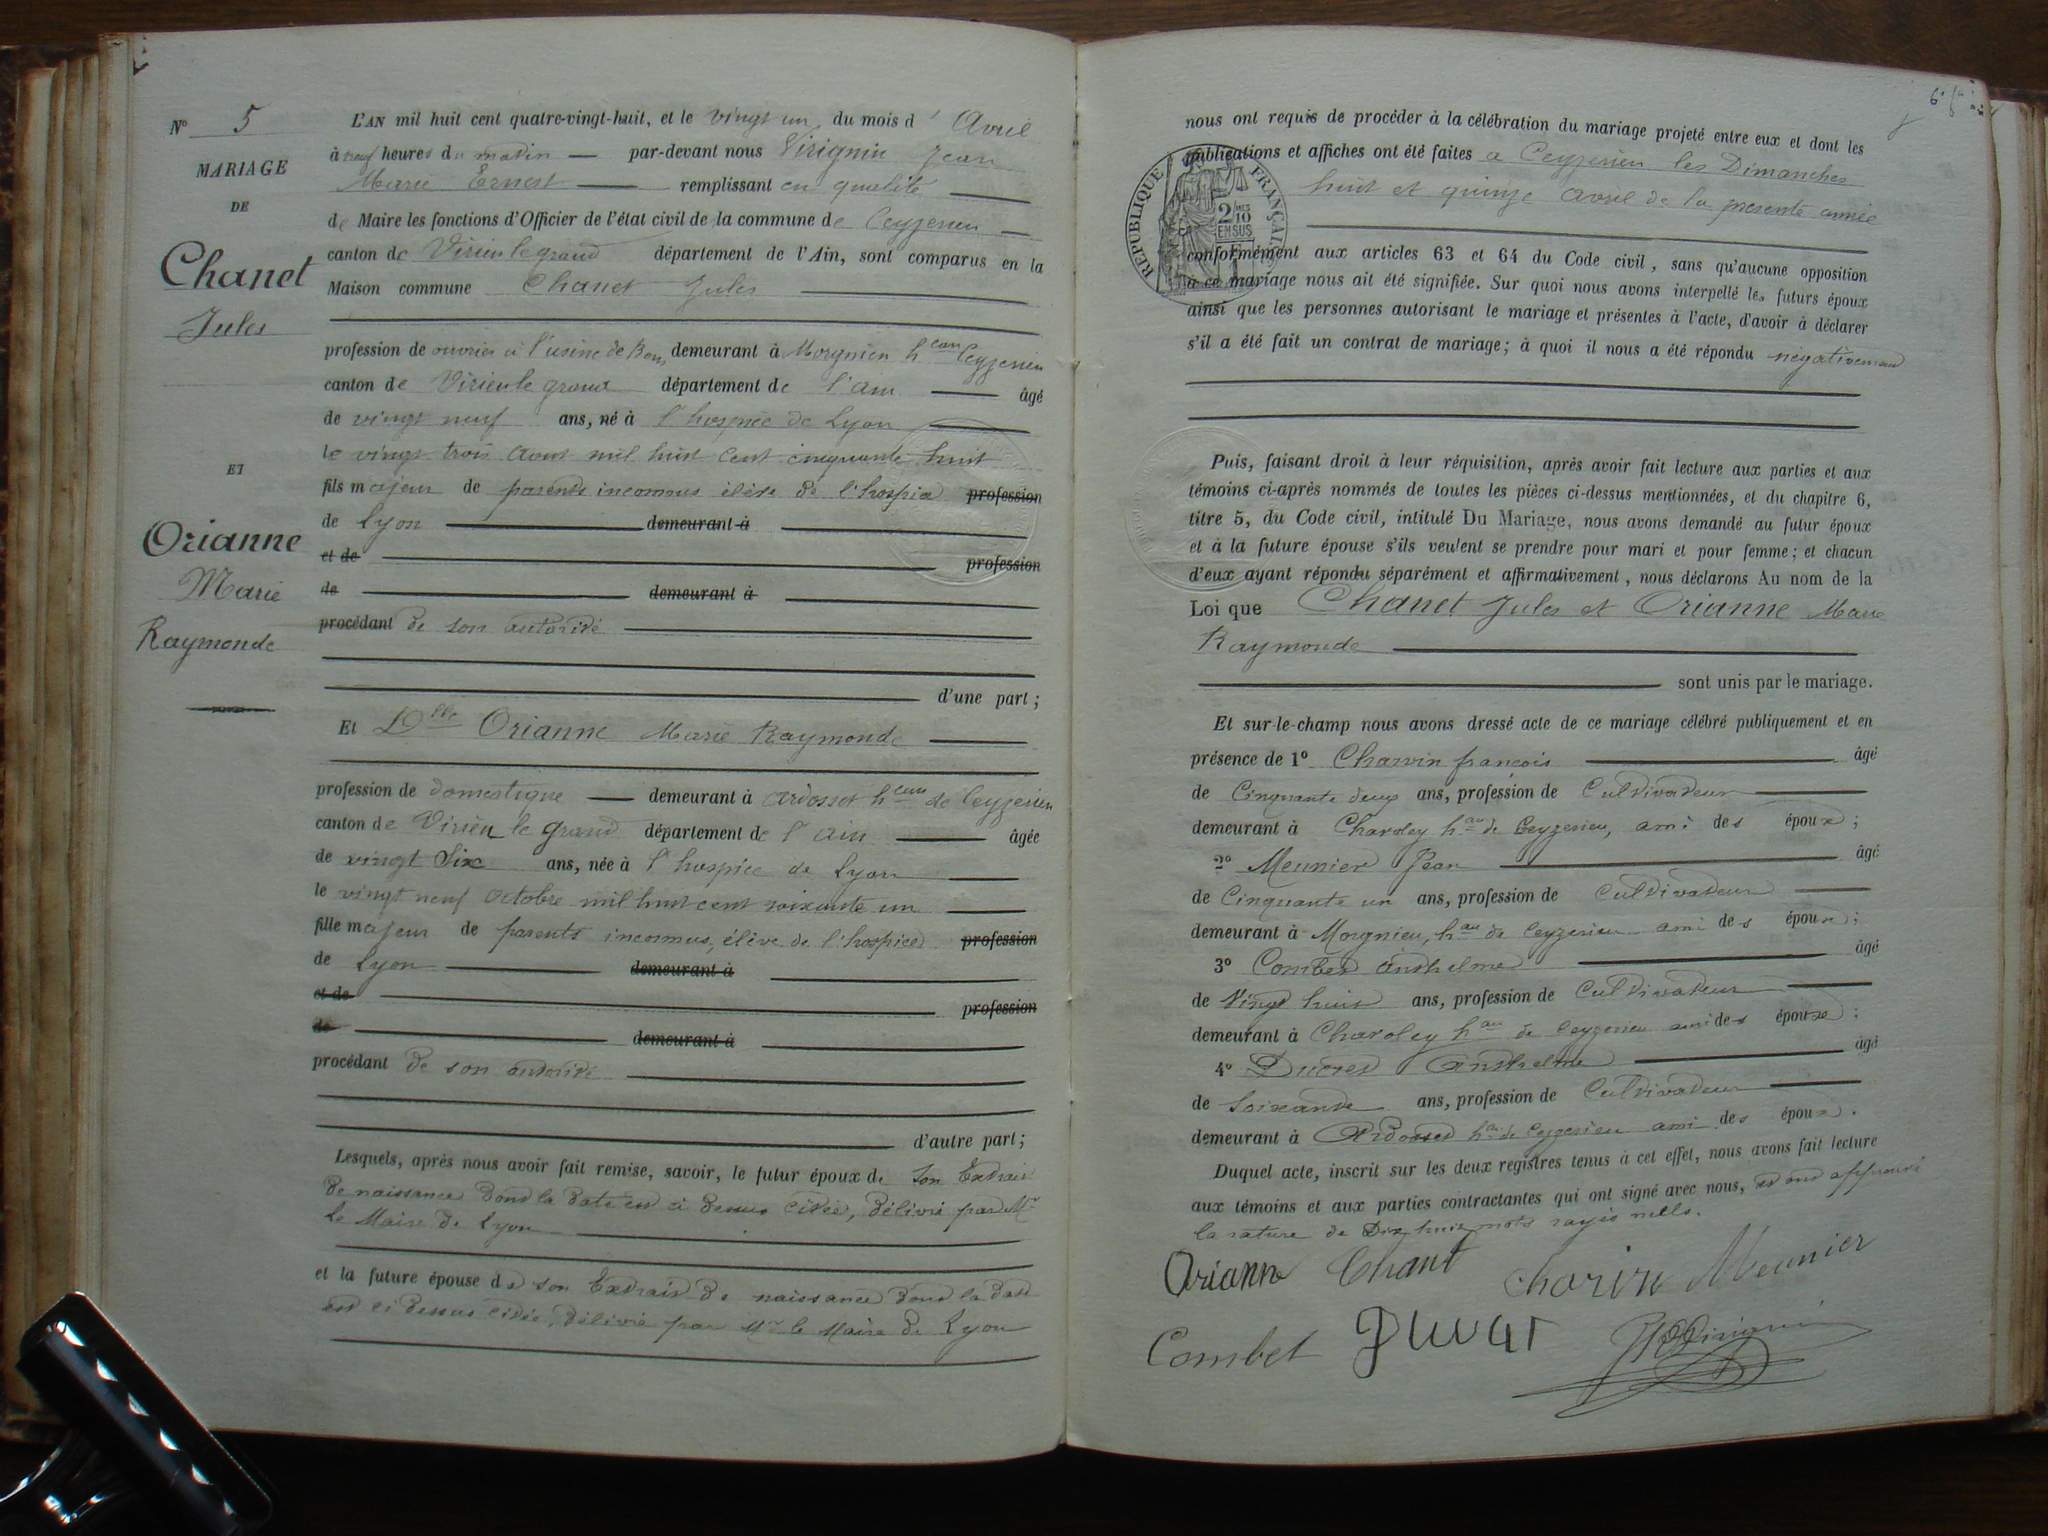 N° 5
MARIAGE
DE
Chanet
Jules
ET
Orianne
Marie
Raymonde
L'AN mil huit cent quatre-vingt-huit, et le vingt un du mois d' Avril
à neuf heures du matin par-devant nous Virignin Jean
Marie Ernest remplissant en qualité
de Maire les fonctions d'Officier de l'état civil de la commune de Ceyzerieu
canton de Virieu le grand département de l'Ain, sont comparus en la
Maison commune Chanet Jules
profession de ouvrier à l'usine de demeurant à Morgnieu h.eau Ceyzerieu
canton de Virieu le grand département de l'ain âgé
de vingt neuf ans, né à l'hospice de Lyon
le vingt trois aout mil huit cent cinquante huit
fils majeur de parents inconnus élève de l'hospice profession
de Lyon demeurant à
et de profession
de demeurant à
procédant de son autorité
d'une part;
Et Dlle Orianne Marie Raymonde
profession de domestique demeurant à ardosset h.eau de Ceyzerieu
canton de Virieu le grand département de l'ain âgée
de vingt six ans, née à l'hospice de Lyon
le vingt neuf octobre mil huit cent soixante un
fille majeur de parents inconnus, élève de l'hospice profession
de Lyon demeurant à
et de profession
de demeurant à
procédant de son autorité
d'autre part;
Lesquels, après nous avoir fait remise, savoir, le futur époux de son Extrait
de naissance dont la date est ci dessus citée, délivré par Mr
le Maire de Lyon
et la future épouse de son Extrait de naissance dont la date
est ci dessus citée, délivré par Mr le Maire de Lyon
nous ont requis de procéder à la célébration du mariage projeté entre eux et dont les
publications et affiches ont été faites a Ceyzerieu les Dimanches
huit et quinze avril de la présente année
RÉPUBLIQUE FRANÇAISE
2/10 MES
EN SUS
conformément aux articles 63 et 64 du Code civil, sans qu'aucune opposition
à ce mariage nous ait été signifiée. Sur quoi nous avons interpellé les futurs époux
ainsi que les personnes autorisant le mariage et présentes à l'acte, d'avoir à déclarer
s'il a été fait un contrat de mariage; à quoi il nous a été répondu négativement
Puis, faisant droit à leur réquisition, après avoir fait lecture aux parties et aux
témoins ci-après nommés de toutes les pièces ci-dessus mentionnées, et du chapitre 6,
titre 5, du Code civil, intitulé Du Mariage, nous avons demandé au futur époux
et à la future épouse s'ils veulent se prendre pour mari et pour femme; et chacun
d'eux ayant répondu séparément et affirmativement, nous déclarons Au nom de la
Loi que Chanet Jules et Orianne Marie
Raymonde
sont unis par le mariage.
Et sur-le-champ nous avons dressé acte de ce mariage célébré publiquement et en
présence de 1° Charvin françois âgé
de Cinquante deux ans, profession de Cultivateur
demeurant à Charoley h.au de Ceyzerieu, ami des époux;
2° Meunier Jean âgé
de Cinquante un ans, profession de Cultivateur
demeurant à Morgnieu, h.au de Ceyzerieu ami des époux;
3° Combet anthelme âgé
de Vingt huit ans, profession de Cultivateur
demeurant à Charoley h.au de Ceyzerieu ami des époux;
4° Ducret Anthelme âgé
de Soixante ans, profession de Cultivateur
demeurant à Ardosset h.au de Ceyzerieu ami des époux.
Duquel acte, inscrit sur les deux registres tenus à cet effet, nous avons fait lecture
aux témoins et aux parties contractantes qui ont signé avec nous, et ont approuvé
la rature de Dix huit mots rayés nulls.
Orianne Chant Charvin Meunier
Combet Virignin